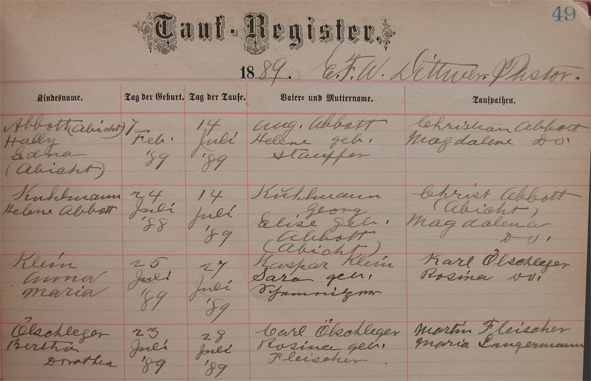 49
Tauf-Register.
1889. E. F. W. Dittmer. Pastor.
Kindesname. Tag der Geburt. Tag der Taufe. Vater- und Muttername. Taufpathen.
Abbott (Abicht) 7 14 Aug. Abbott Christian Abbott
Feb. Juli Helene geb. Magdalena Do.
Edna '89 '89 Stauffer
(Abicht)
Kuhlmann 24 14 Kuhlmann Christ Abbott
Helene Abbott Juli Juli Georg (Abicht)
'88 '89 Elise geb. Magdalena
Abbott Do.
(Abicht)
Klein 25 27 Kaspar Klein Karl Ölschleger
Anna Juli Juli Sara geb. Rosina Do.
Maria '89 '89
Ölschleger 23 28 Carl Ölschleger Martin Fleischer
Bertha Juli Juli Rosina geb. Maria Langermann
Dorothea '89 '89 Fleischer